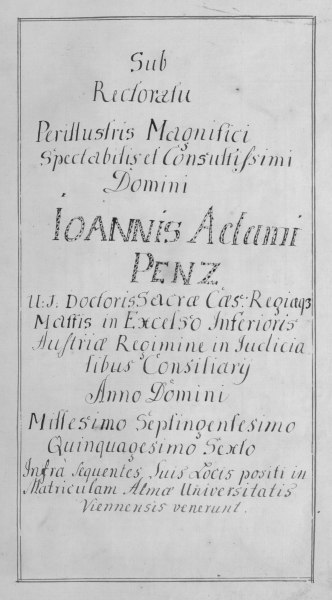 Sub
Rectoratu
Perillustris Magnifici
Spectabilis et Consultissimi
Domini
IOANNIS Adami
PENZ
U: J. Doctoris Sacræ Cæs: Regiaqз
Mattis in Excelso Inferioris
Austriæ Regimine in Iudicia
libus Consiliary
Anno Domini
Millesimo Septingentesimo
Quinquagesimo Sexto
Infra Sequentes, Suis Locis positi in
Matriculam Almæ Universitatis
Viennensis venerunt.